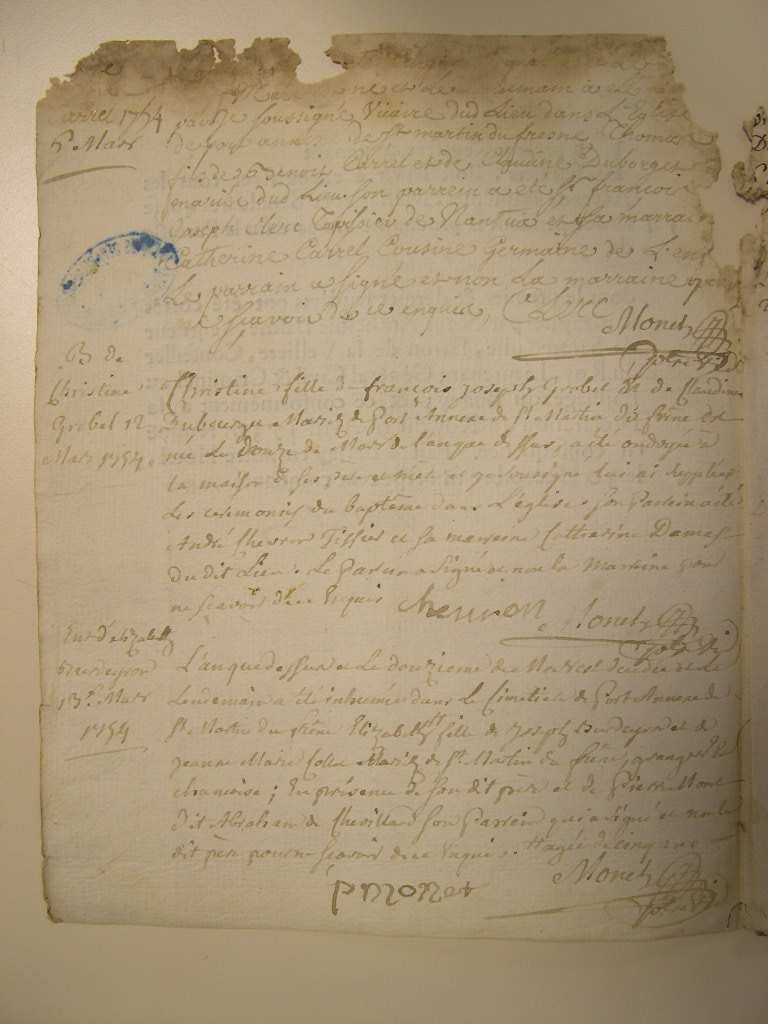 Carrel 1754
5e Mars
par le soussigné Vicaire dud Lieu dans L'Eglise
de port annexe de St martin du fresne Thomas
fils de Benoit Carrel et de Claudine Duborget
mariés dud Lieu. Son parrein a eté Sr françois
Joseph Clerc Tapissier de Nantua et sa marrain
Catherine Carrel Cousine Germaine de L'enf
Le parrain a signé et non La marraine pour
ne Sçavoir de ce enquis, Clerc
Monet
ptre Vic
B de
Christine
Grobel 12
Mars 1754
Christine fille de françois joseph Grobel et de Claudine
Mariez de Port Annexe de St Martin du frêne est
née Le douze de Mars de l'an que dessus, a été ondoyée a
la maison de ses pere et mere et je soussigné lui ai supplée
Les ceremonies du baptême dans L'église. son Parrein a été
André Chevron Tissier et sa marreine Catherine Damas
du dit Lieu. Le Parrein a signé et non la Marreine pour
ne sçavoir de ce Enquis chevron Monet
ptre Vi
Ent d'elizabeth
Burdeyron
13e Mars
1754
L'an que dessus et Le douzieme de Mars est decedée et le
Lendemain a été inhumée dans Le Cimetiere de Port Annexe de
St Martin du frêne Elizabeth fille de Joseph Burdeyron et de
Jeanne Marie Mariez de St Martin du frêne, grangers
chamoise; En présence de son dit père et de Pierre Monet
dit Abraham de Chevillard son Parrein qui a signé et non le
dit père pour ne sçavoir de ce Enquis. Agée de cinq ans
Monet
ptre Vi
p monet